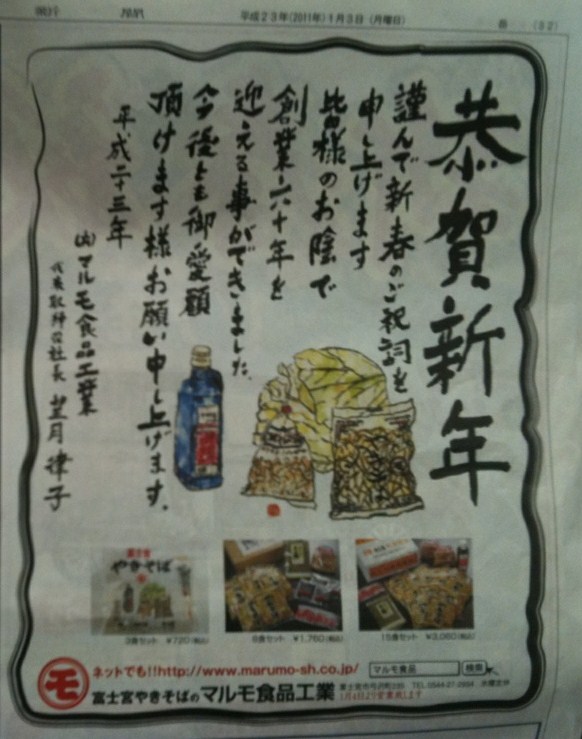 平成23年(2011年)1月3日(月曜日)
恭賀新年
謹んで新春のご祝詞を
申し上げます
皆様のお陰で
創業六十年を
迎える事ができました。
今後とも御愛顧
頂けます様お願い申し上げます。
平成二十三年
(有)マルモ食品工業
代表取締役社長 望月律子
富士宮
やきそば
3食セット ¥720(税込)
6食セット ¥1,760(税込)
15食セット ¥3,060(税込)
モ
ネットでも!!http://www.marumo-sh.co.jp/
マルモ食品 検索
富士宮やきそばのマルモ食品工業
TEL.0544-27-0994 水曜定休